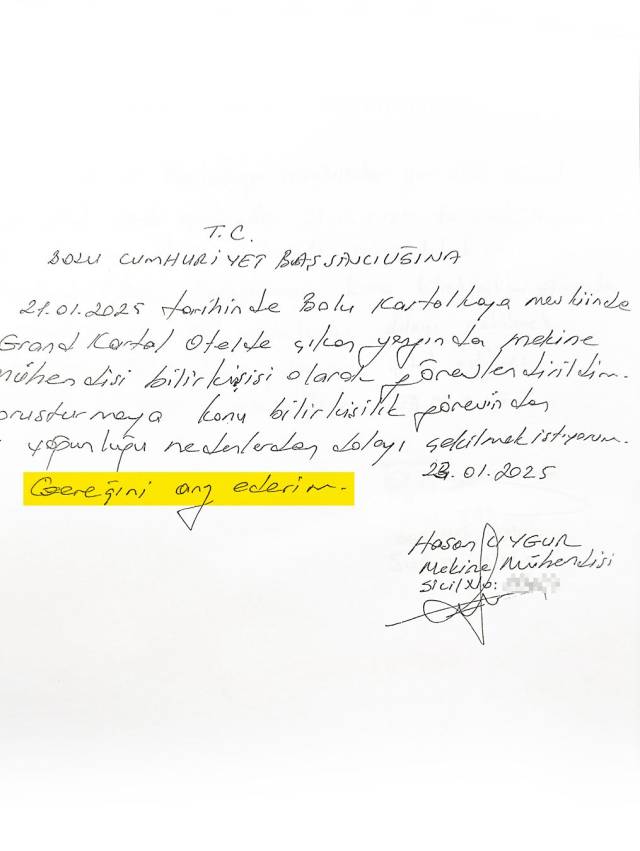 T.C.
BOLU CUMHURİYET BAŞSAVCILIĞINA
21.01.2025 tarihinde Bolu Kartalkaya mevkiinde
Grand Kartal Otelde çıkan yangında mekine
mühendisi bilirkişisi olarak görevlendirildim.
oruşturmaya konu bilirkişilik görevinden
yoğunluğu nedenlerden dolayı çekilmek istiyorum.
23.01.2025
Gereğini arz ederim.
Hasan UYGUR
Mekine Mühendisi
Sicil No: